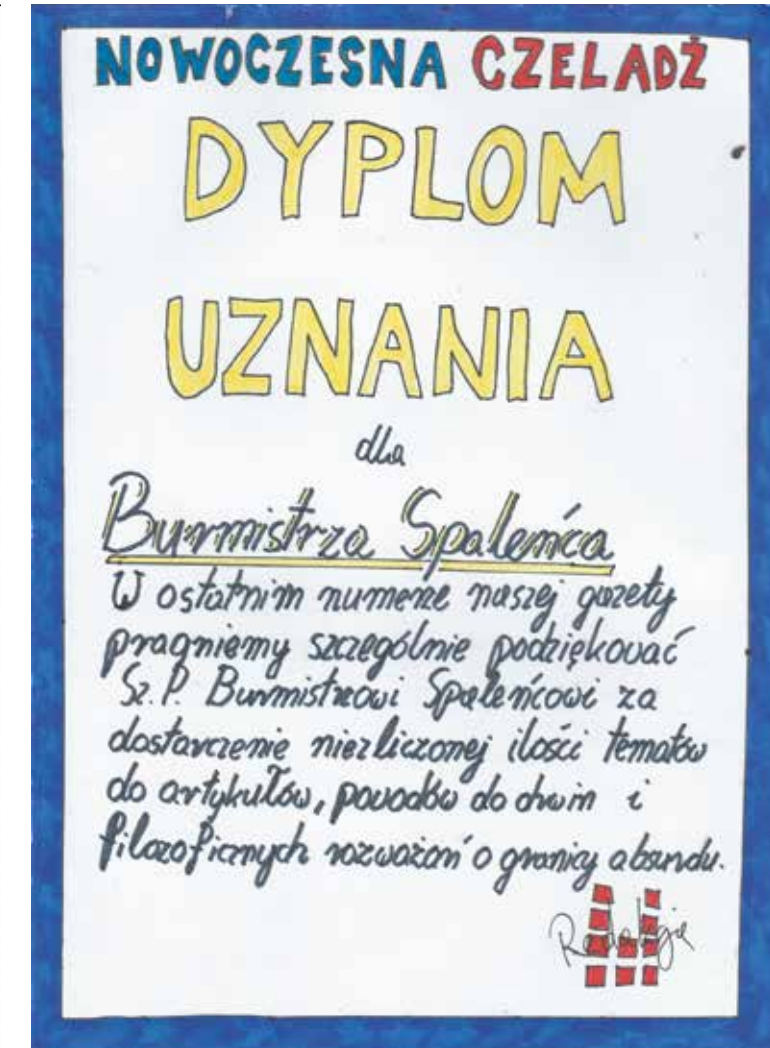 NOWOCZESNA CZELADŹ
DYPLOM
UZNANIA
dla
Burmistrza Spaleńca
W ostatnim numerze naszej gazety
pragniemy szczególnie podziękować
Sz. P. Burmistrzowi Spaleńcowi za
dostarczenie niezliczonej ilości tematów
do artykułów, powodów do drwin i
filozoficznych rozważań o granicy absurdu.
Redakcja